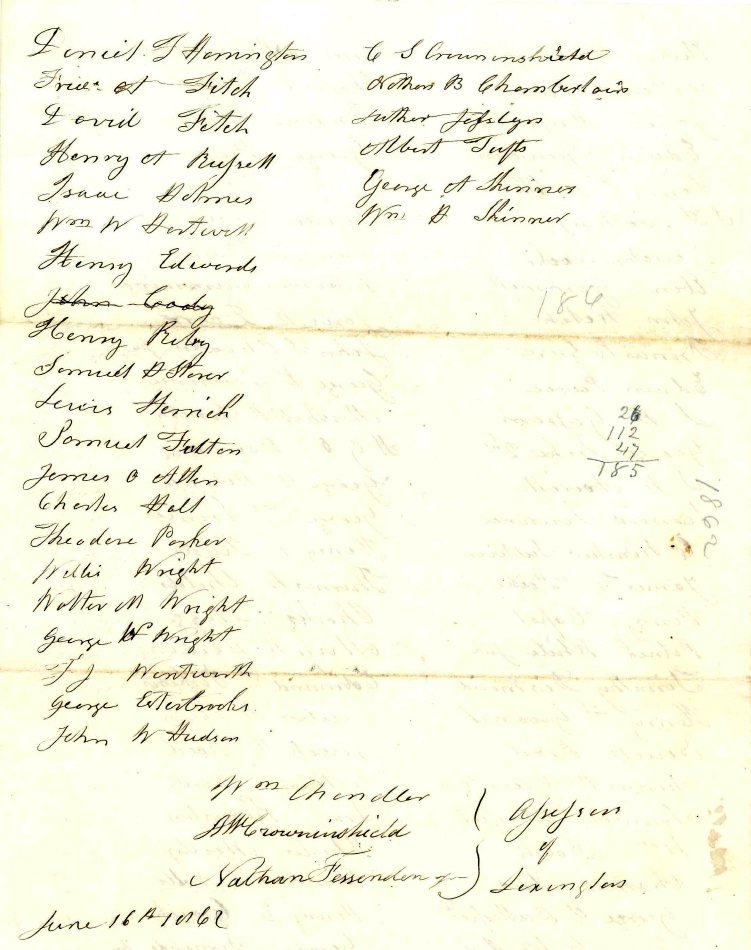 Daniel T Harrington
Fred A Fitch
David Fitch
Henry A Russell
Isaac Holmes
Wm W Hartwell
Henry Edwards
John Cody
Henry Riley
Samuel H Storer
Lewis Herrick
Samuel Fulton
James O Allen
Charles Hall
Theodore Parker
Willis Wright
Walter M Wright
George W Wright
T J Wentworth
George Esterbrooks
John W Hudson
C S Crowninshield
Nathan B Chamberlain
Luther Joslyn
Albert Tufts
George A Skinner
Wm H Skinner
186
26
112
47
185
1862
Wm Chandler
A W Crowninshield
Nathan Fessenden
Assessors
of
Lexington
June 16th 1862